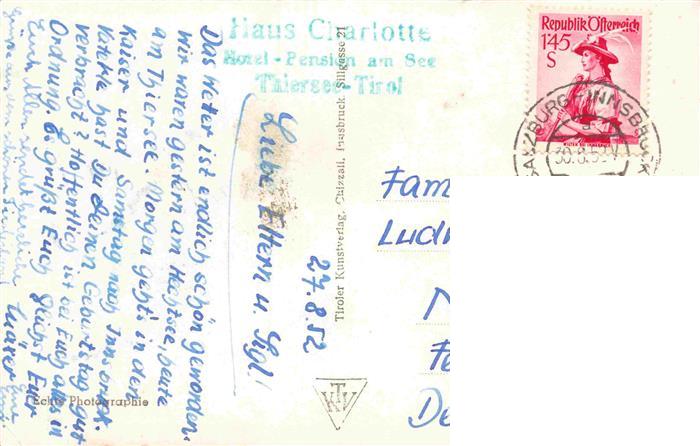 Haus Charlotte
Hotel-Pension am See
Thiersee-Tirol
Republik Österreich
1'45
S
SALZBURG-INNSBRUCK
30.8.5
27.8.52
Liebe Eltern u. Sigl!
Das Wetter ist endlich schön geworden.
Wir waren gestern am Hechtsee, heute
am Thiersee. Morgen geht's in den
Kaiser und Samstag nach Innsbruck.
Vaterle hast Du Deinen Geburtstag gut
verbracht? Hoffentlich ist bei Euch alles in
Ordnung. Es grüßt Euch herzlichst Euer
Euch allen recht herzliche
Grüße aus dem schönen
Tiroler Kunstverlag, Chizzali, Innsbruck, Sillgasse 21
Echte Photographie
TKV
Fam
Ludw
N
Fe
De